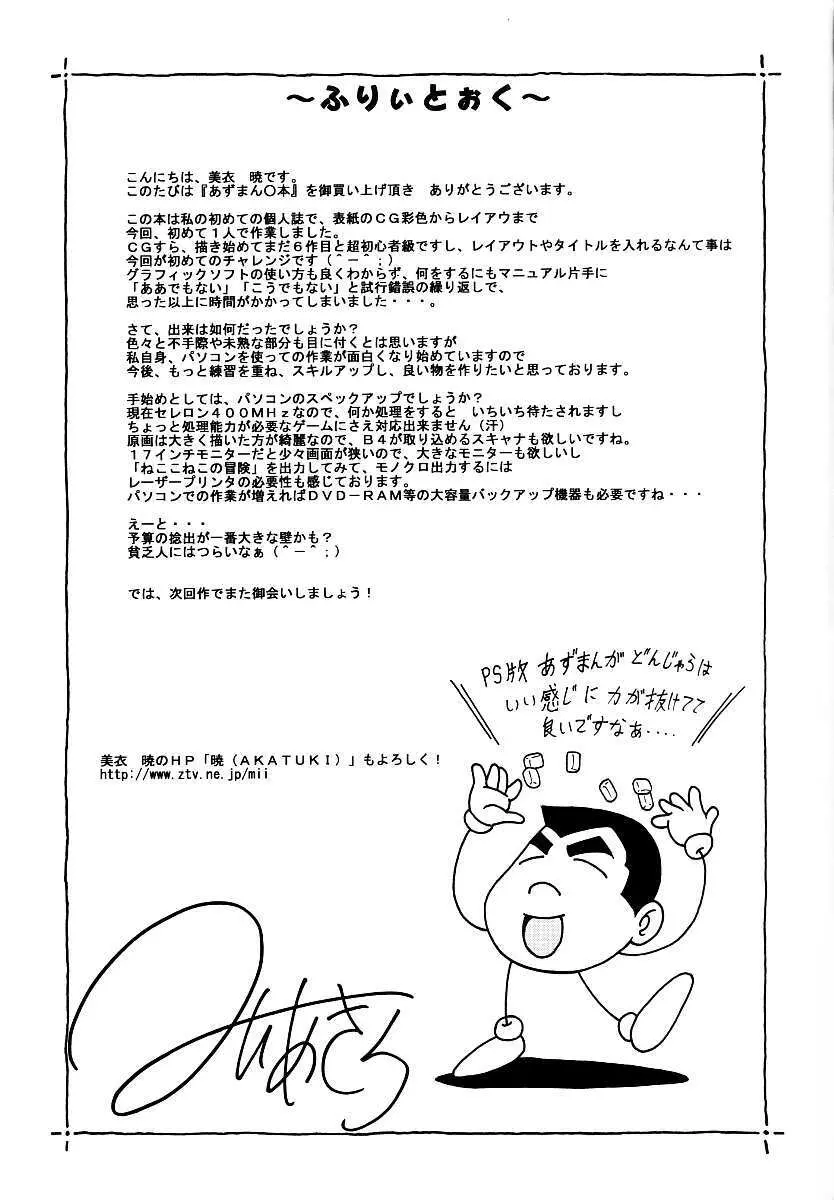 ～ふりぃとぉく～
こんにちは、美衣　暁です。
このたびは『あずまん〇本』を御買い上げ頂き　ありがとうございます。
この本は私の初めての個人誌で、表紙のＣＧ彩色からレイアウまで
今回、初めて１人で作業しました。
ＣＧすら、描き始めてまだ６作目と超初心者級ですし、レイアウトやタイトルを入れるなんて事は
今回が初めてのチャレンジです（＾－＾；）
グラフィックソフトの使い方も良くわからず、何をするにもマニュアル片手に
「ああでもない」「こうでもない」と試行錯誤の繰り返しで、
思った以上に時間がかかってしまいました・・・。
さて、出来は如何だったでしょうか？
色々と不手際や未熟な部分も目に付くとは思いますが
私自身、パソコンを使っての作業が面白くなり始めていますので
今後、もっと練習を重ね、スキルアップし、良い物を作りたいと思っております。
手始めとしては、パソコンのスペックアップでしょうか？
現在セレロン４００ＭＨｚなので、何か処理をすると　いちいち待たされますし
ちょっと処理能力が必要なゲームにさえ対応出来ません（汗）
原画は大きく描いた方が綺麗なので、Ｂ４が取り込めるスキャナも欲しいですね。
１７インチモニターだと少々画面が狭いので、大きなモニターも欲しいし
「ねここねこの冒険」を出力してみて、モノクロ出力するには
レーザープリンタの必要性も感じております。
パソコンでの作業が増えればＤＶＤ－ＲＡＭ等の大容量バックアップ機器も必要ですね・・・
えーと・・・
予算の捻出が一番大きな壁かも？
貧乏人にはつらいなぁ（＾－＾；）
では、次回作でまた御会いしましょう！
PS版 あずまんが どんじゃらは
いい感じに 力が抜けてて
良いですなぁ‥‥
美衣　暁のＨＰ「暁（ＡＫＡＴＵＫＩ）」もよろしく！
http://www.ztv.ne.jp/mii
みいあきら